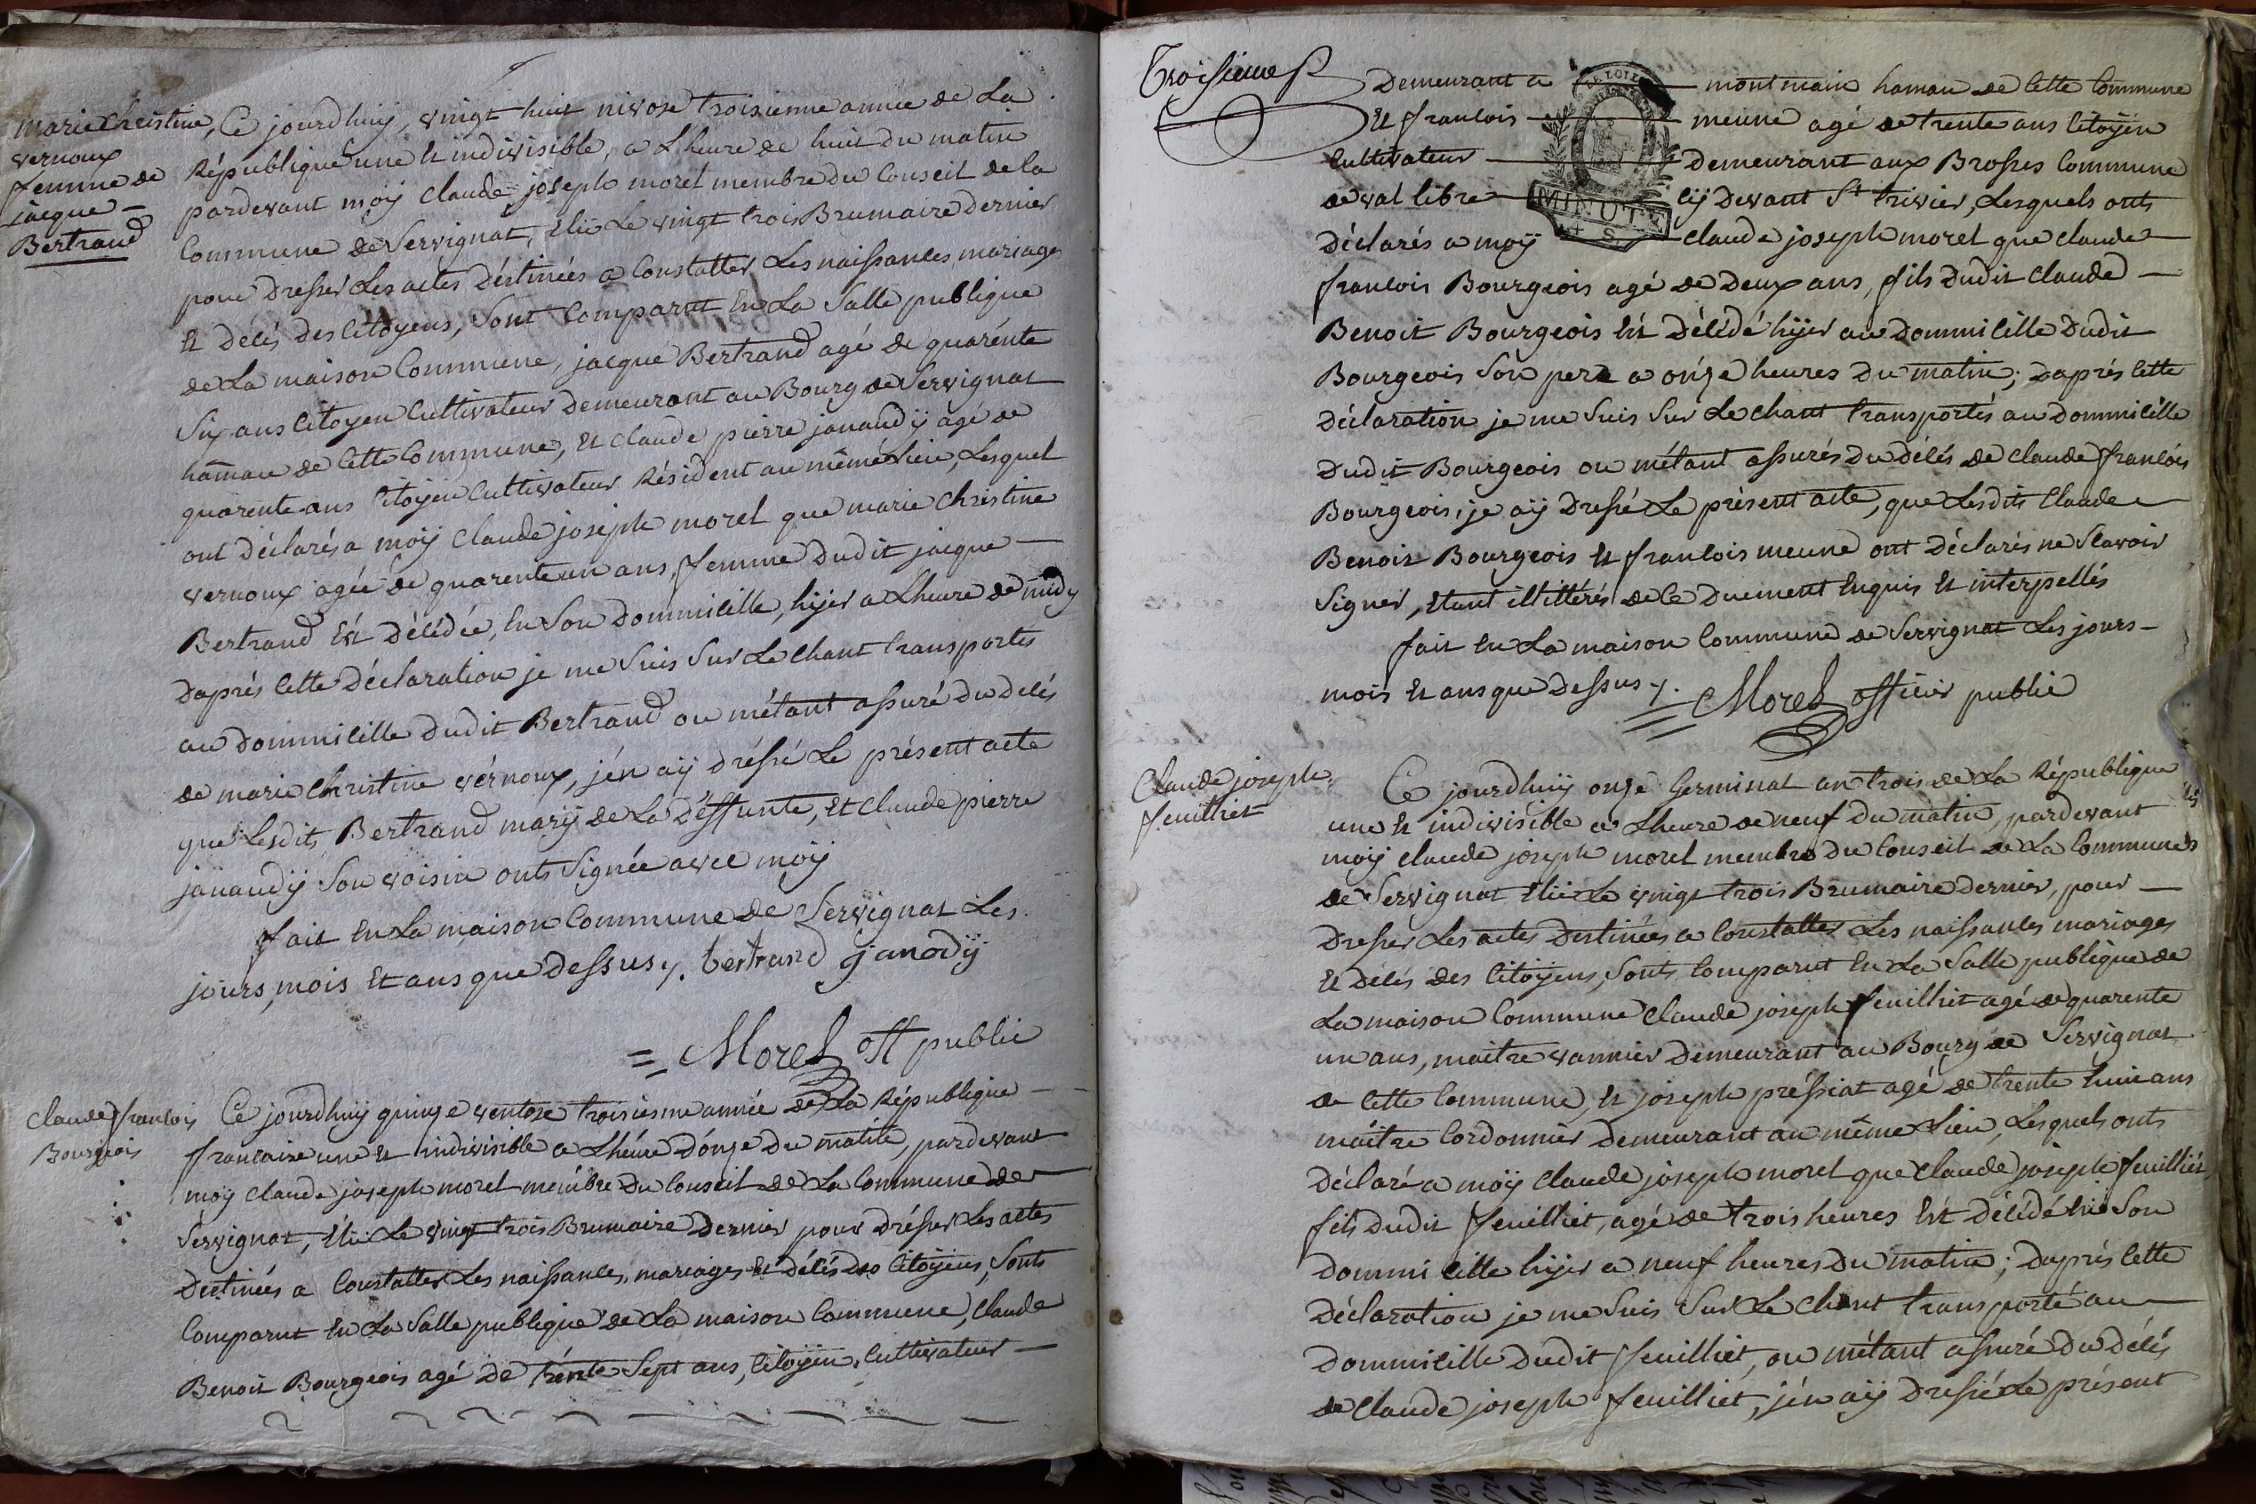 marie Christine
vernoux
femme de
jacque
Bertrand
Ce jourdhuÿ, vingt huit nivose troisienne année de La
République une Et indivisible, a Lheure de huit du matin
pardevant moÿ Claude joseph morel membre du Conseil de la
Commune de Servignat, Élû Le vingt trois Brumaire dernier
pour Dresser Les actes déstinées a Constatter Les naissances mariage
Et décés des Citoyens, Sont Comparut En La Salle publique
de La maison Commune, jacque Bertrand agé de quarénte
Six ans Citoyen Cultivateur demeurant au Bourg de Servignat
hamau de Cette Commune, Et Claude pierre janaudÿ agé de
quarente ans Citoÿen Cultivateur Résident au même Lieu, Lesquel
ont déclarés a moÿ Claude joseph morel que marie Christine
vernoux agée de quarente un ans, femme dudit jacque
Bertrand Est décédée, En Son dommicille, hÿer a Lheure de midy
daprés Cette déclaration je me Suis Sur Le Chant transportés
au dommicille dudit Bertrand ou métant assuré du decés
de marie Christine vérnoux, jén aÿ dréssé Le présent acte
que Lesdits Bertrand marÿ de La déffunte, Et Claude pierre
janaudÿ Son voisin onts Signée avec moÿ
fait En La maison Commune de Servignat Les
jours, mois Et ans que dessus y. bertrand janodÿ
= Morel off public
Claude francois
Bourgeois
Ce jourdhuÿ quinze ventose troisiesme année de La République
francaise une Et indivisible a Lheure dónze du matin, pardevant
moÿ Claude joseph morel membre du Conseil de La Commune de
Servignat, Élû Le vingt trois Brumaire dernier pour drésser Les actes
destinées a Constatter Les naissances, mariages Et décés des Citoÿens, Sonts
Comparut En La Salle publique de La maison Commune, Claude
Benoit Bourgeois agé de trénte Sept ans, Citoÿen, Cultivateur
Troisieme
Demeurant a montmain hamau de Cette Commune
Et francois meune agé de trente ans Citoÿen
Cultivateur demeurant aux Brosses Commune
de val libre cÿ devant St trivier, Lesquels onts
déclarés a moÿ Claude joseph morel que Claude
LOI
MINUTE
S.
francois Bourgeois agé de deux ans, fils dudit Claude
Benoit Bourgeois Est décédé hÿer au dommicille dudit
Bourgeois Son pere a onze heures du matin; daprés Cette
déclaration je me Suis Sur Le Chant transportés au dommicille
dudit Bourgeois ou métant assurés du décés de Claude francois
Bourgeois, je aÿ dressé Le présent acte, que Lesdits Claude
Benoit Bourgeois Et francois meune ont déclarés ne Scavoir
Signer, Etant illittérés de Ce duement Enquis Et interpellés
fait En La maison Commune de Servignat Les jours
mois Et ans que dessus y. Morel officier public
Claude joseph
feuilliet
Ce jourdhuÿ onze Germinal an trois de La République
une Et indivisible a Lheure de neuf du matin, pardevant
moÿ Claude joseph morel membre du Conseil de La Commune
de Servignat Élû Le vingt trois Brumaire dernier, pour
dresser Les actes destinées a Constatter Les naissances mariages
Et décés des Citoÿens, Sonts Comparut En La Salle publique de
La maison Commune Claude joseph feuilliet agé de quarente
un ans, maitre vannier demeurant au Bourg de Servignat
de Cette Commune, Et joseph préssiat agé de trente huit ans
maître Cordonnier demeurant au même Lieu, Lesquels onts
déclaré a moÿ Claude joseph morel que Claude joseph feuilliet
fils dudit feuilliet, agé de trois heures Est décédé En Son
dommicille hÿer a neuf heures du matin; daprés Cette
déclaration je me Suis Sur Le Chant transporté au
dommicille dudit feuilliet, ou métant assuré du décés
de Claude joseph feuilliet, jén aÿ dressé Le présent